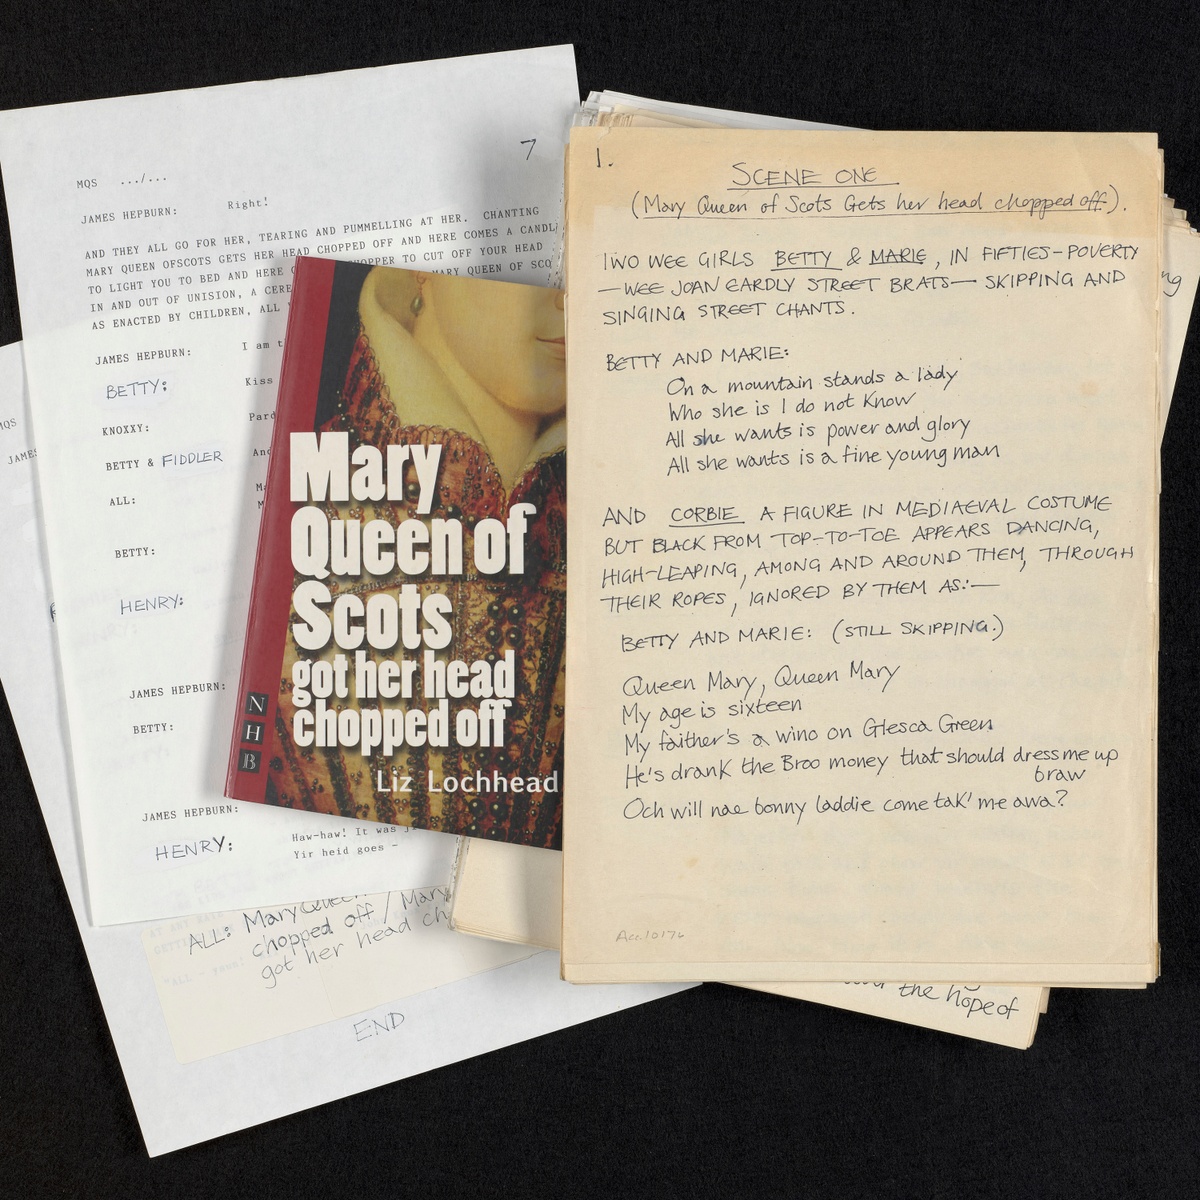 7
MQS .../...
JAMES HEPBURN: Right!
AND THEY ALL GO FOR HER, TEARING AND PUMMELLING AT HER. CHANTING
MARY QUEEN OFSCOTS GETS HER HEAD CHOPPED OFF AND HERE COMES A CANDL
TO LIGHT YOU TO BED AND HERE CHOPPER TO CUT OFF YOUR HEAD
IN AND OUT OF UNISION, A CERE MARY QUEEN OF SCO
AS ENACTED BY CHILDREN, ALL
JAMES HEPBURN: I am t
BETTY: Kiss
KNOXXY: Pard
BETTY & FIDDLER An
ALL:
BETTY:
HENRY:
JAMES HEPBURN:
BETTY:
JAMES HEPBURN: Haw-haw! It was
HENRY: Yir heid goes -
MQS
JAMES
ALL: Mary Queen
chopped off / Mary
got her head ch
END
Mary
Queen of
Scots
got her head
chopped off
Liz Lochhead
N
H
B
1.
SCENE ONE
(Mary Queen of Scots Gets her head chopped off).
TWO WEE GIRLS BETTY & MARIE, IN FIFTIES-POVERTY
—WEE JOAN EARDLY STREET BRATS— SKIPPING AND
SINGING STREET CHANTS.
BETTY AND MARIE:
On a mountain stands a lady
Who she is I do not know
All she wants is power and glory
All she wants is a fine young man
AND CORBIE A FIGURE IN MEDIAEVAL COSTUME
BUT BLACK FROM TOP-TO-TOE APPEARS DANCING,
HIGH-LEAPING, AMONG AND AROUND THEM, THROUGH
THEIR ROPES, IGNORED BY THEM AS:—
BETTY AND MARIE: (STILL SKIPPING.)
Queen Mary, Queen Mary
My age is sixteen
My faither's a wino on Glesca Green
He's drank the Broo money that should dress me up
braw
Och will nae bonny laddie come tak' me awa?
Acc.10176
ng
the hope of